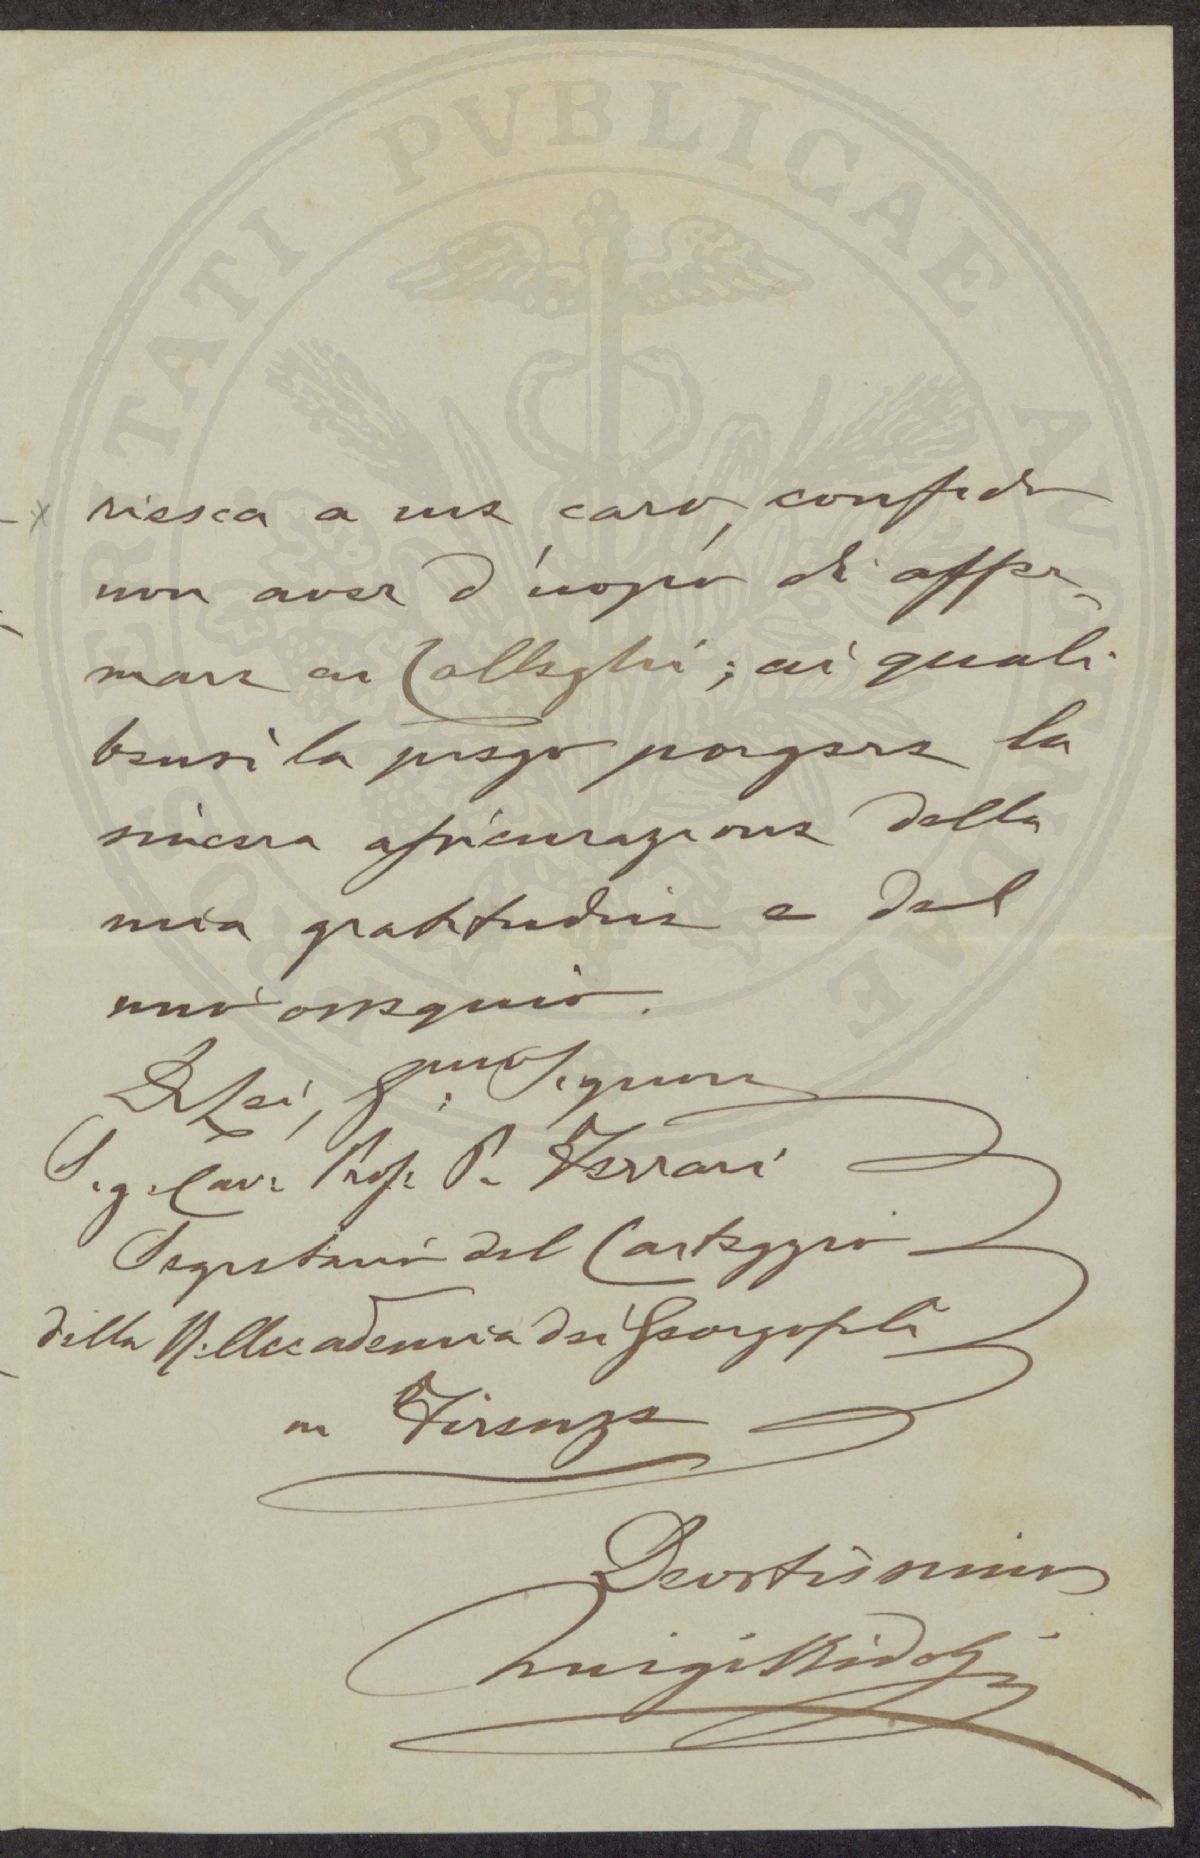 PROSPERITATI PVBLICAE AVGENDAE
riesca a me caro, confido
non aver d'uopo di affer-
mare ai Colleghi; ai quali
bensì la prego porgere la
sincera assicurazione della
mia gratitudine e del
mio ossequio.
Di Lei, Signore
Sig. Cav. Prof. P. Ferrari
Segretario del Carteggio
della R. Accademia dei Georgofili
in Firenze
Devotissimo
Luigi Ridolfi